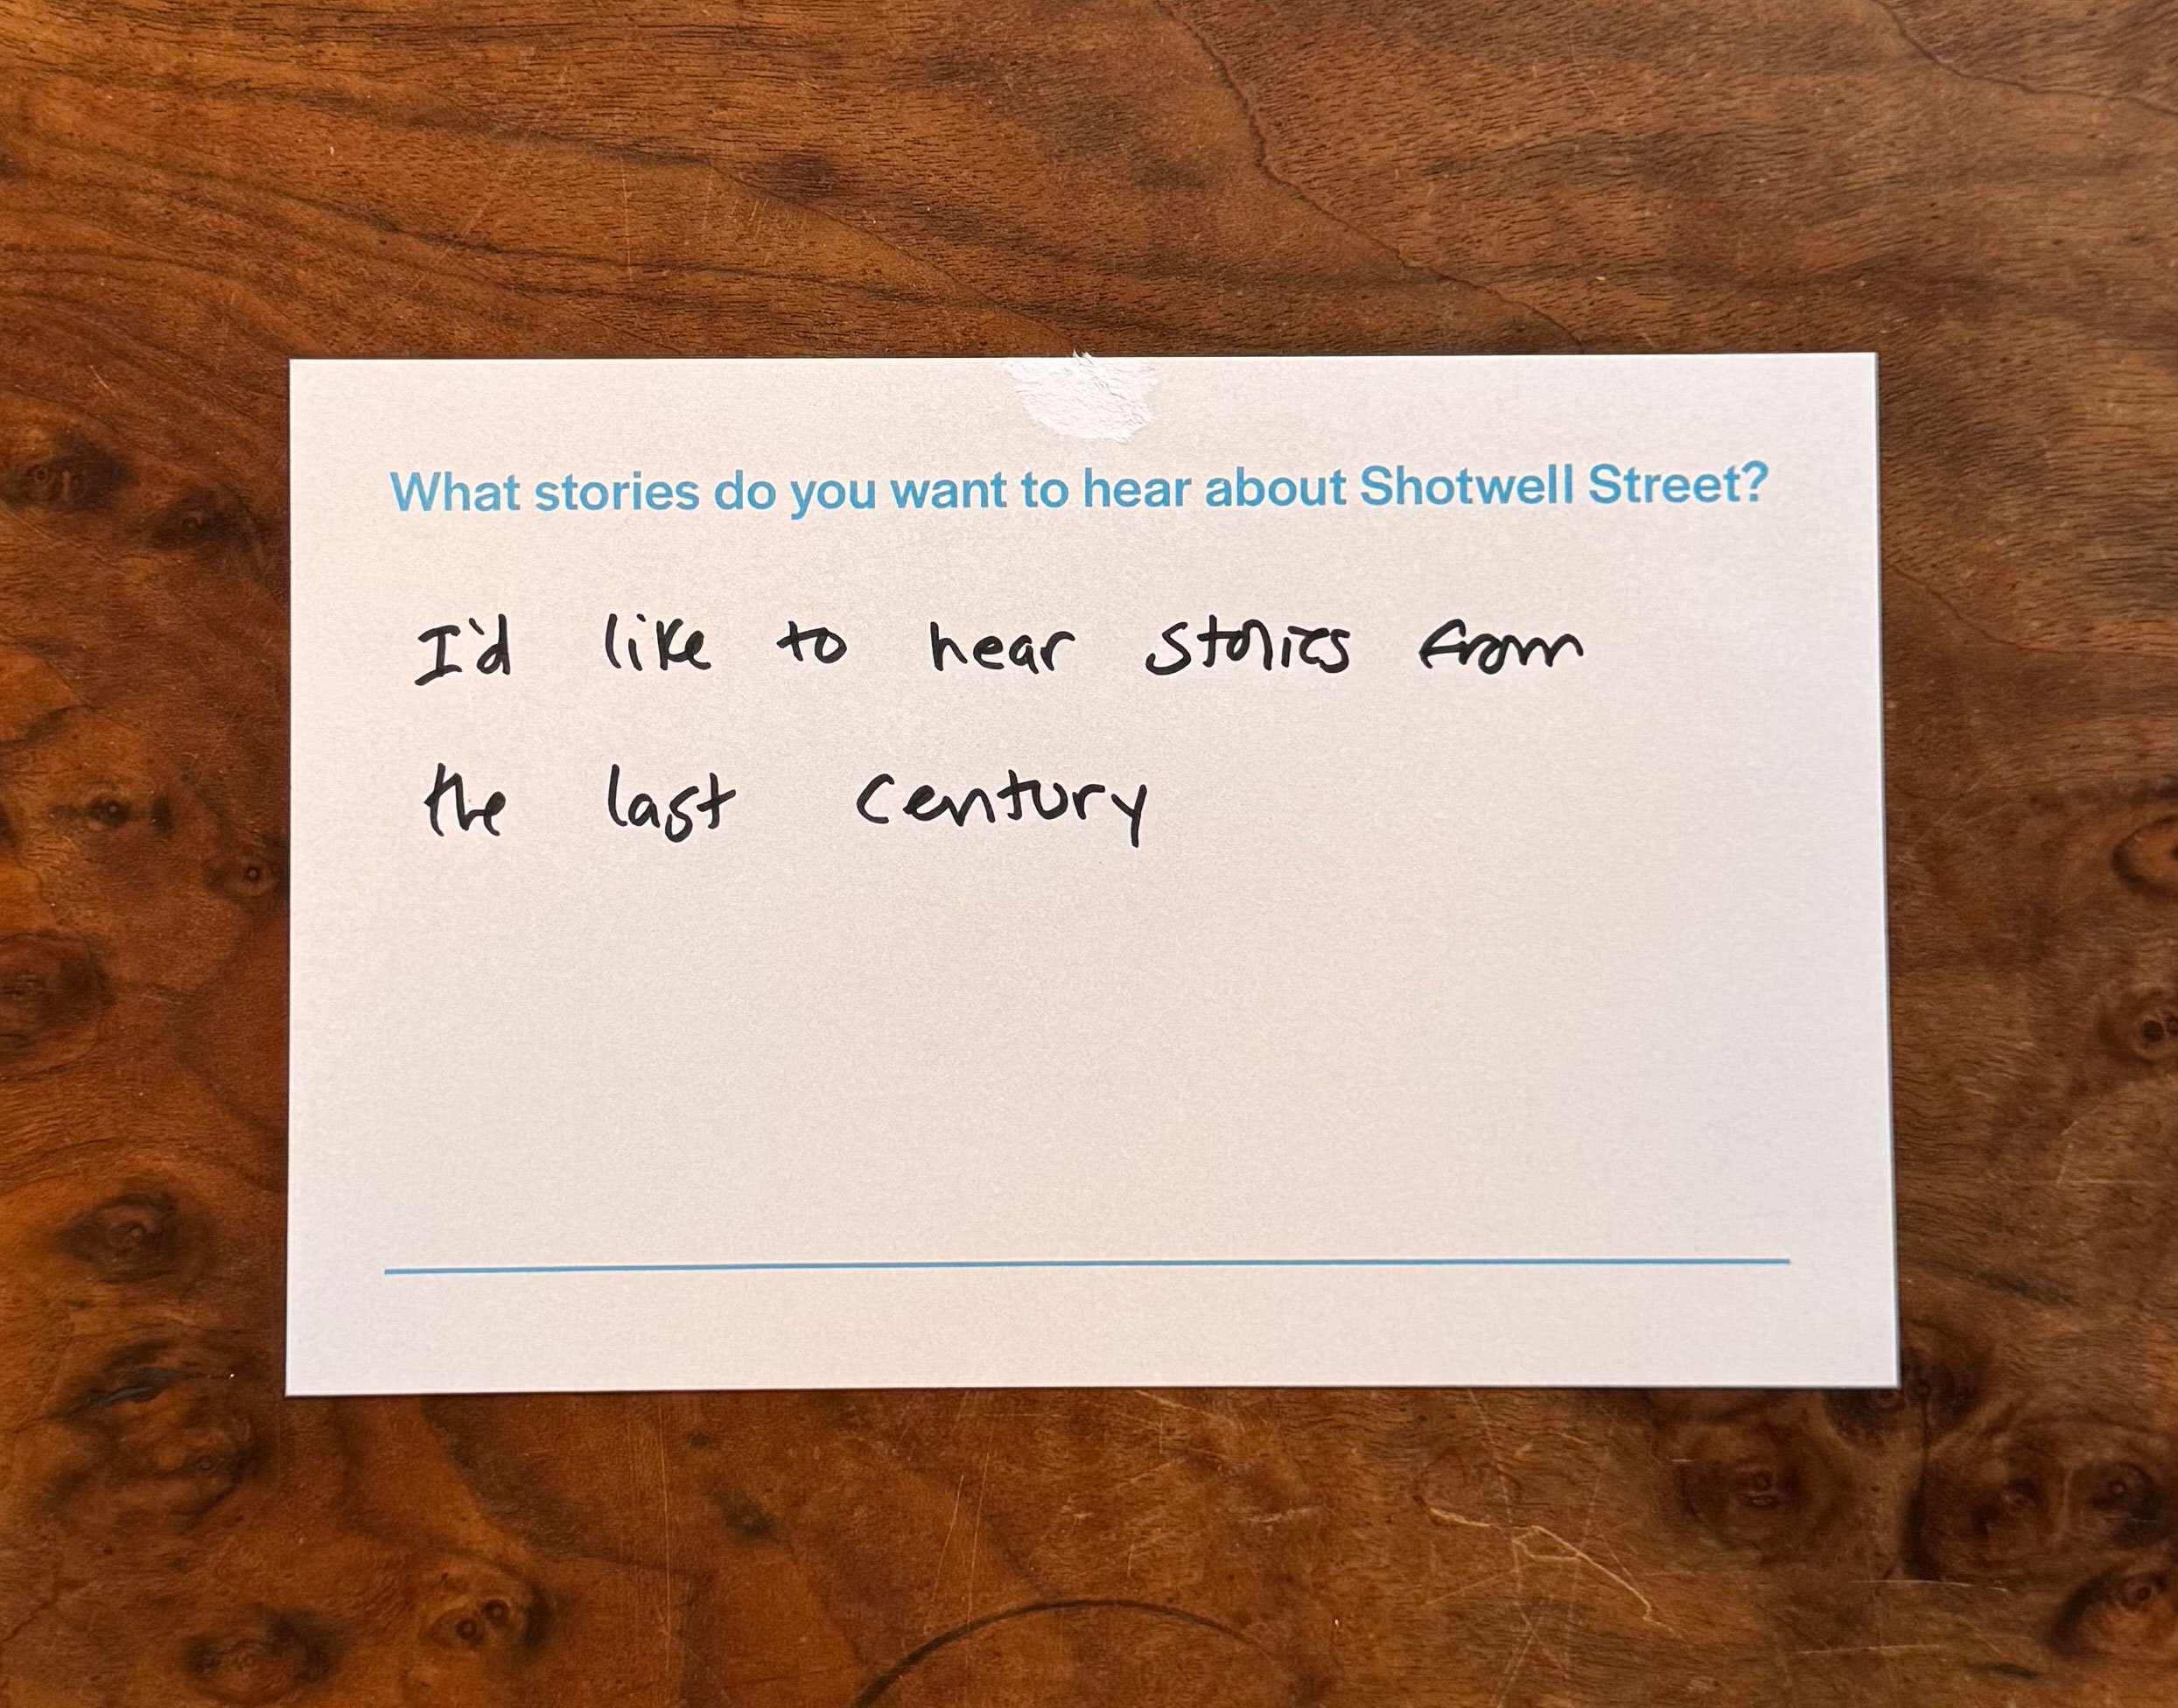 What stories do you want to hear about Shotwell Street?
I'd like to hear stories from
the last century